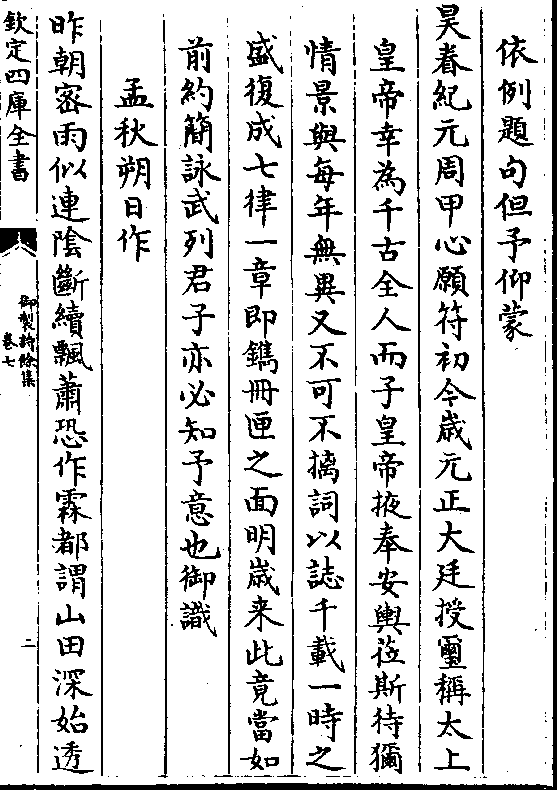 依例題句但予仰蒙
昊眷紀元周甲心願符初今歲元正大廷授璽稱太上
皇帝幸為千古全人而子皇帝掖奉安輿莅斯待獮
情景與每年無異又不可不摛詞以誌千載一時之
盛復成七律一章即鐫冊匣之面明歲来此竟當如
前約簡詠武列君子亦必知予意也御識
孟秋朔日作
昨朝密雨似連陰斷續飄蕭恐作霖都謂山田深始透
欽定四庫全書
御製詩餘集
卷七
二